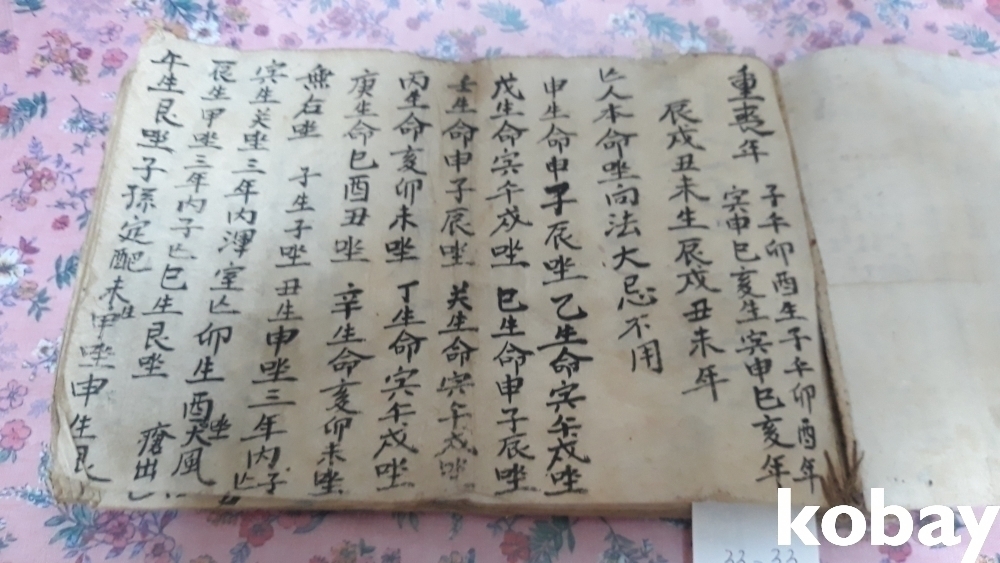 重喪年 子午卯酉生子午卯酉年
寅申巳亥生寅申巳亥年
辰戌丑未生辰戌丑未年
亡人本命坐向法大忌不用
申生命申子辰唑 乙生命寅午戌唑
戊生命寅午戌唑 巳生命申子辰唑
壬生命申子辰唑 癸生命寅午戌唑
丙生命亥卯未唑 丁生命寅午戌唑
庚生命巳酉丑唑 辛生命亥卯未唑
無右唑 子生子唑丑生申唑三年内子亡
寅生癸唑三年内渾室亡卯生酉唑
辰生甲唑三年内子亡巳生艮唑 大風瘡出
午生艮唑子孫定配未生甲唑申生艮
kobay
33-33